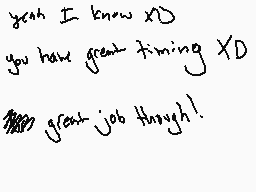 yeah I know XD
you have great timing XD
great job though!